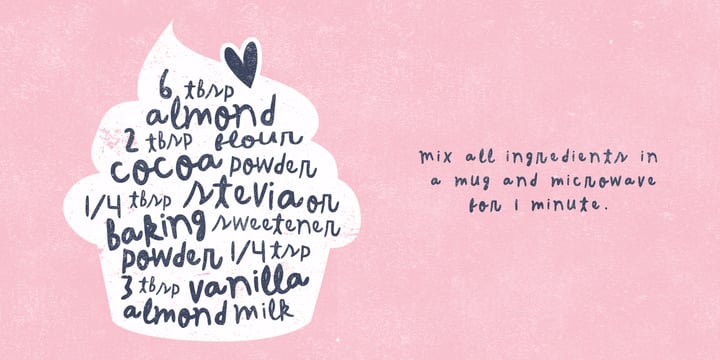 6 tbsp
almond
2 tbsp flour
cocoa powder
1/4 tbsp stevia or
baking sweetener
powder 1/4 tsp
3 tbsp vanilla
almond milk
mix all ingredients in
a mug and microwave
for 1 minute.